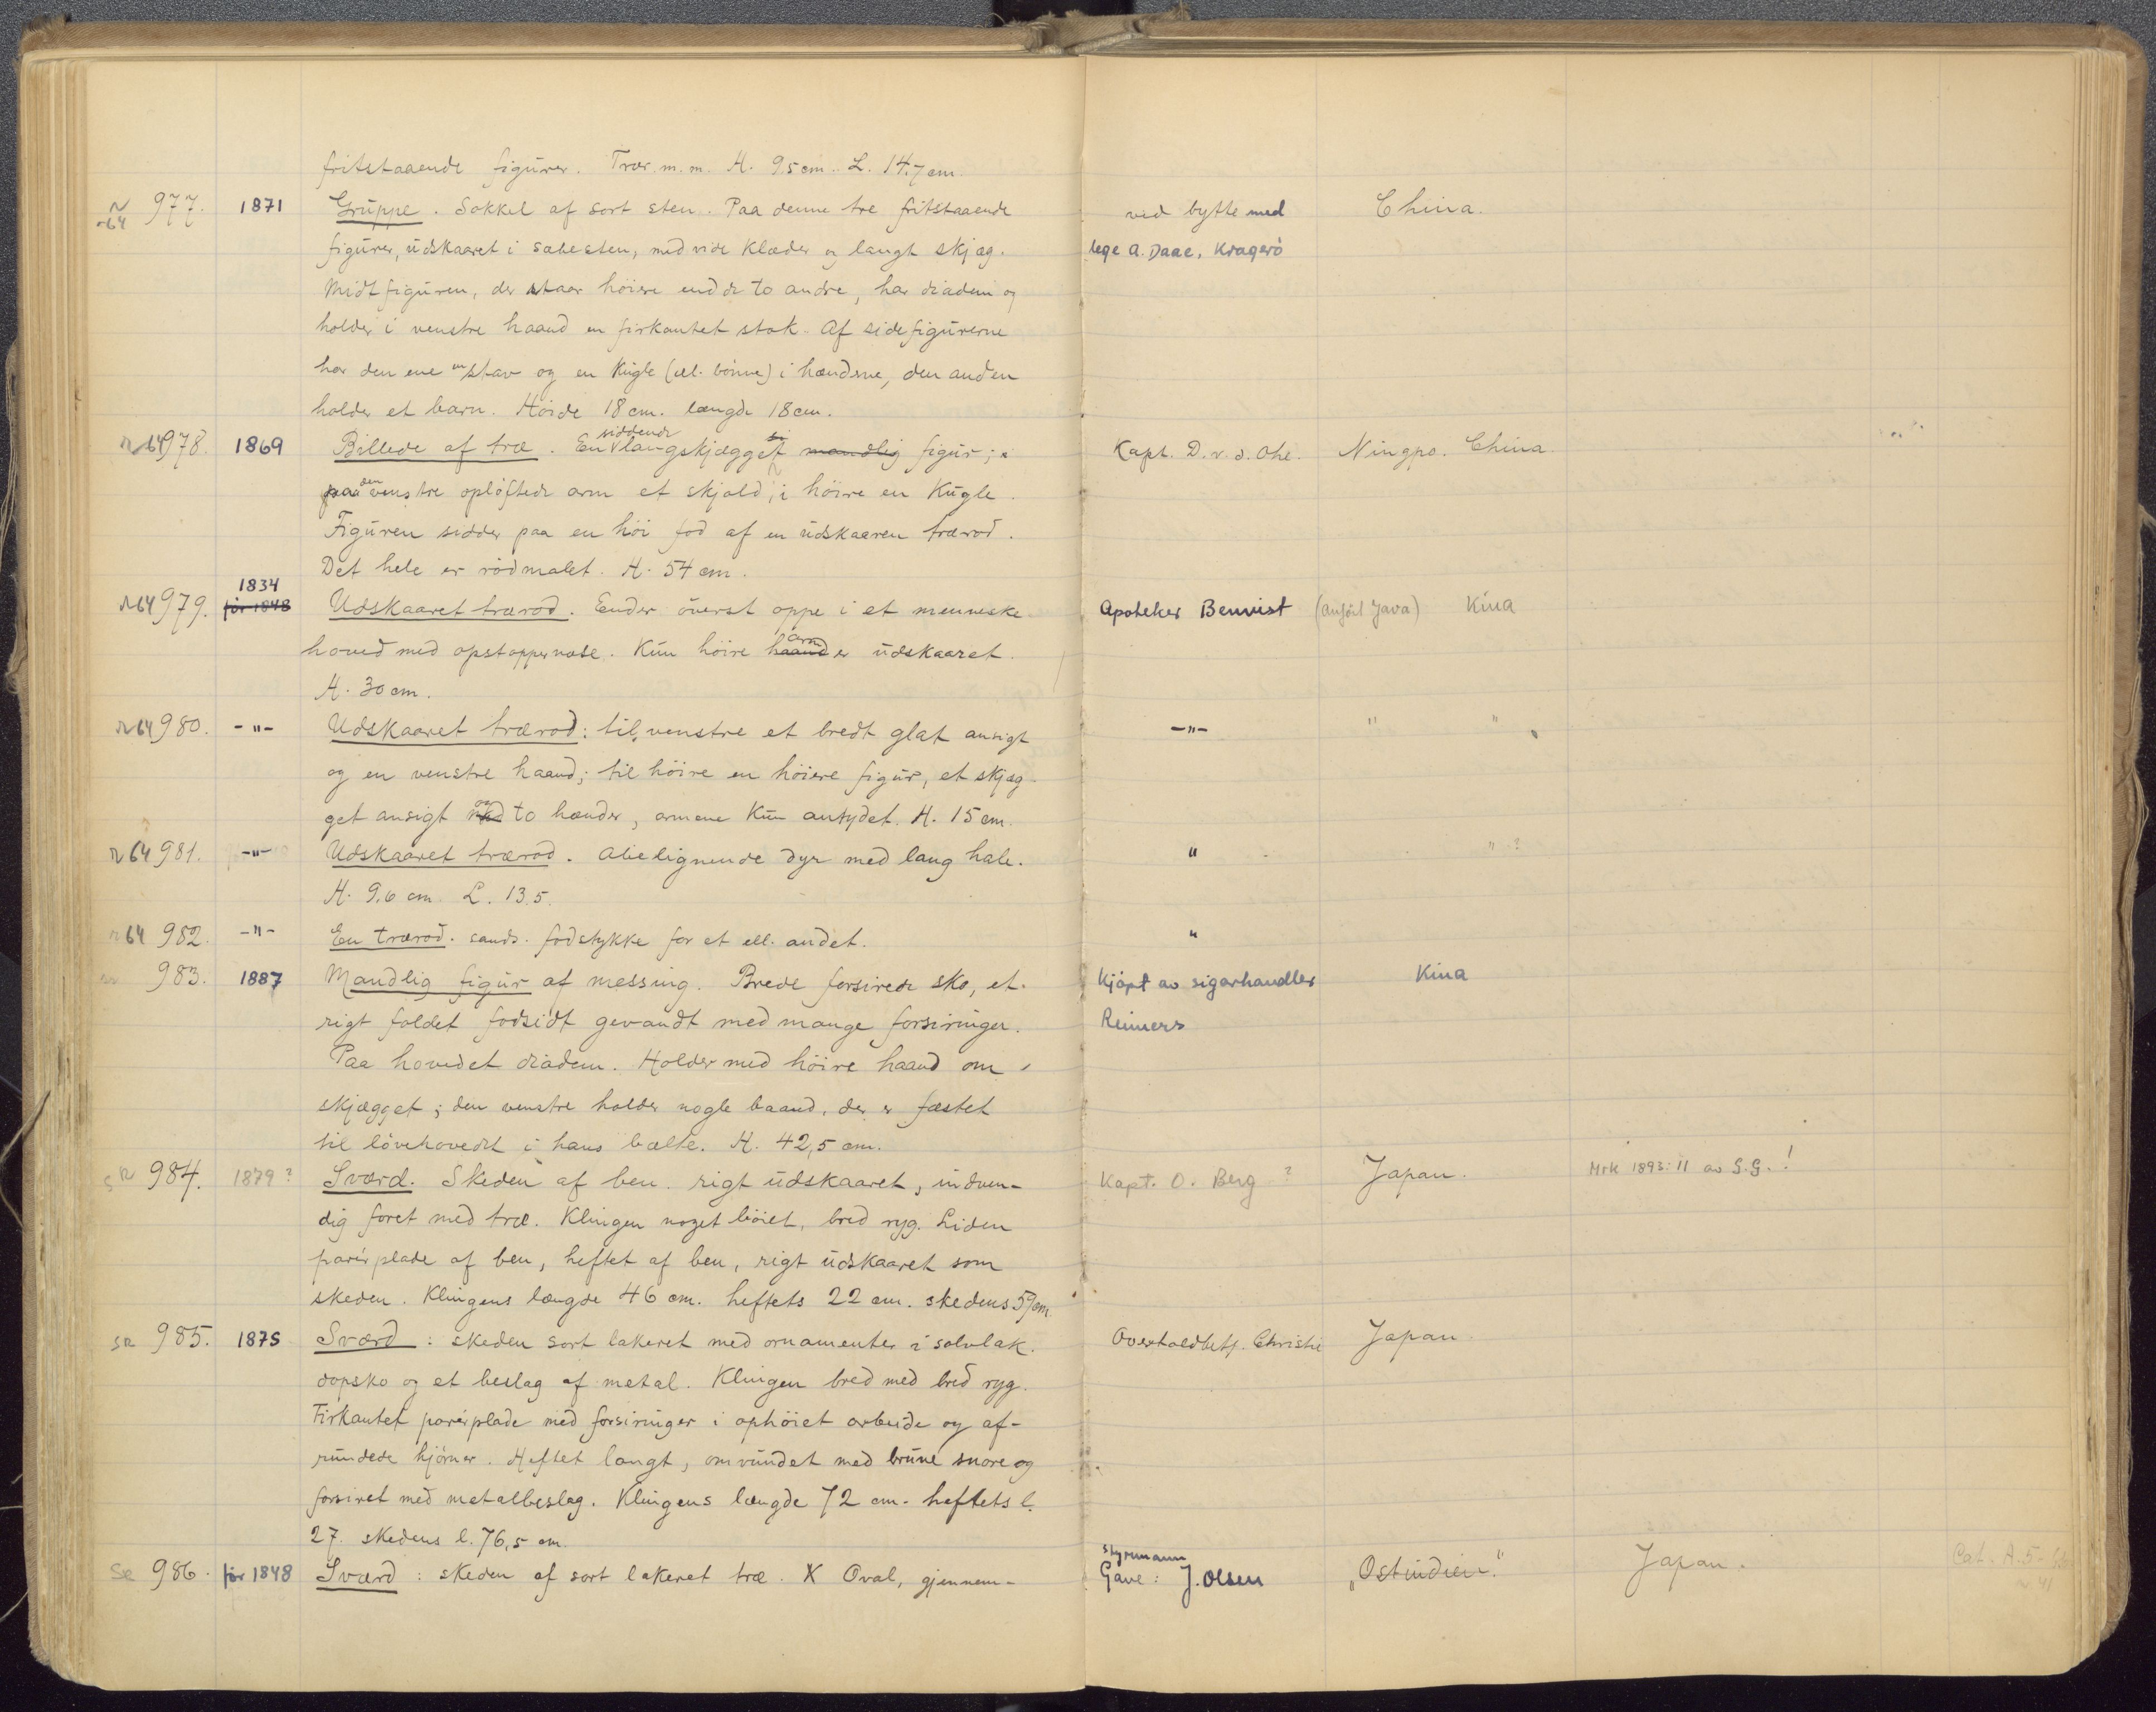 fritstaaende figurer. Træ m.m. H. 9.5 cm. L. 14.7 cm.
~64 977. 1871 Gruppe. Sokkel af sort sten. Paa denne tre fritstaaende ved bytte med China.
figurer, udskaaret i sæbesten, med vide klæder og langt skjæg. lege A. Daae, Kragerö
Midtfiguren, der staar höiere end de to andre, har diadem og
holder i venstre haand en firkantet stok. Af sidefigurerne
har den ene en stav og en kugle (ell. bönne) i hænderne, den anden
holder et barn. Höide 18 cm. længde 18 cm.
siddende
r 64 978. 1869 Billede af træ. En langskjægget mandlig figur; Kapt. D. v. d. Ohe. Ningpo. China.
paa den venstre opløftede arm et skjold, i höire en kugle.
Figuren sidder paa en höi fod af en udskaaren trærod.
Det hele er rödmalet. H. 54 cm.
1834
r 64 979. för 1848 Udskaaret trærod. Ender överst oppe i et menneske- Apoteker Bennist (Anfört Java) Kina
arm
hoved med opstoppernæse. Kun höire haand er udskaaret.
H. 30 cm.
r 64 980. -"- Udskaaret trærod: til venstre et bredt glat ansigt -"- " "
og en venstre haand; til höire en höiere figur, et skjæg-
get ansigt med og to hænder, armene kun antydet. H. 15 cm.
r 64 981. -"- Udskaaret trærod. Abelignende dyr med lang hale. " " ?
H. 9.6 cm. L. 13.5.
r 64 982. -"- En trærod. sands. fodstykke for et ell. andet. "
983. 1887 Mandlig figur af messing. Brede forsirede sko, et Kjöpt av sigarhandler Kina
rigt foldet fodsidt gevandt med mange forsiringer. Reimers
Paa hovedet diadem. Holder med höire haand om
skjægget; den venstre holder nogle baand, der er fæstet
til lövehovedet i hans bælte. H. 42,5 cm.
s R 984. 1879? Sværd. Skeden af ben. rigt udskaaret, indven- Kapt. O. Berg ? Japan. Mrk 1893: 11 av G.G.!
dig foret med træ. Klingen noget böiet, bred ryg. Liden
parérplade af ben, heftet af ben, rigt udskaaret som
skeden. Klingens længde 46 cm. heftets 22 cm. skedens 59 cm.
SR 985. 1875 Sværd: skeden sort lakeret med ornamenter i sølvlak. Overtoldbetj. Christie Japan.
dopsko og et beslag af metal. Klingen bred med bred ryg.
Firkantet parérplade med forsiringer i ophöiet arbeide og af-
rundede hjörner. Heftet langt, omvundet med brune snore og
forsiret med metalbeslag. Klingens længde 72 cm. heftets l.
27. skedens l. 76,5 cm.
Styrmann
SR 986. för 1848 Sværd: skeden af sort lakeret træ. X Oval, gjennem- Gave: J. Olsen „Ostindien." Japan. Cat. A. 5